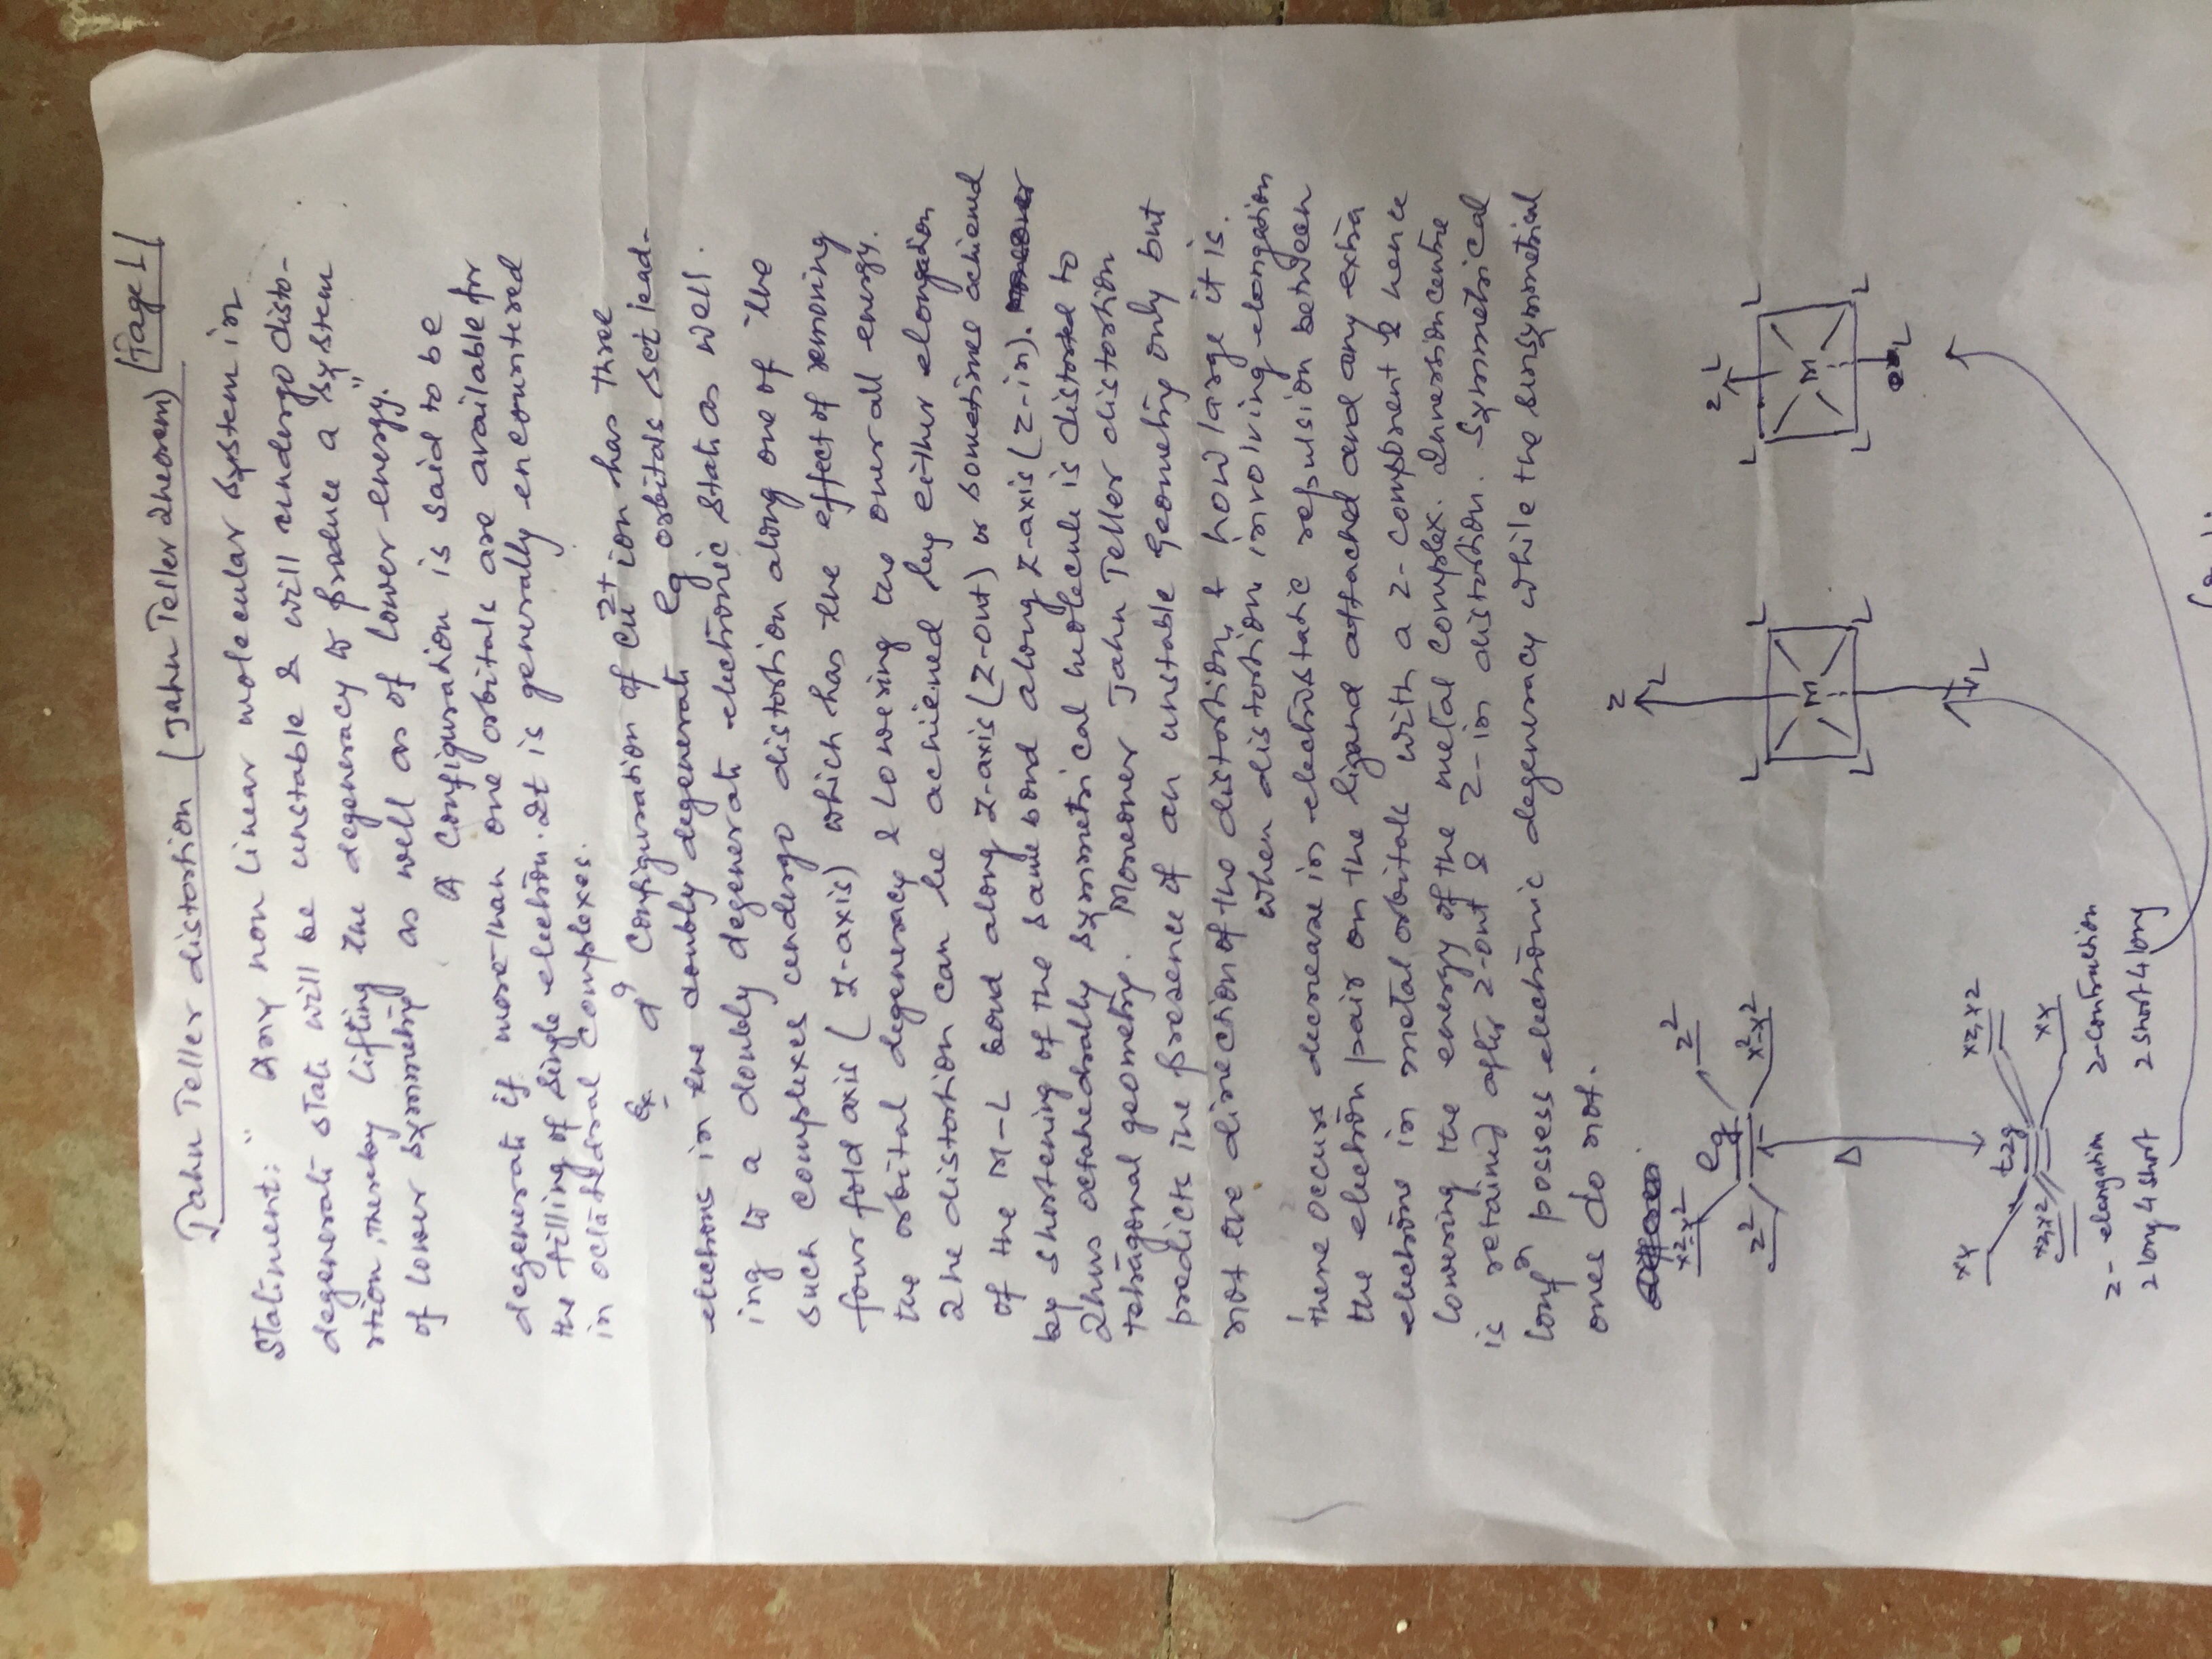 Jahn Teller distortion (Jahn Teller Theorem) [Page 1]
Statement: "Any non linear molecular system in
degenerate state will be unstable & will undergo disto-
rtion, thereby lifting the degeneracy to produce a system
of lower symmetry as well as of lower energy."
A configuration is said to be
degenerate if more-than one orbitals are available for
the filling of single electron. It is generally encountered
in octahedral complexes.
Ex d9 configuration of Cu2+ ion has three
electrons in the doubly degenerate eg orbitals set lead-
ing to a doubly degenerate electronic state as well.
such complexes undergo distortion along one of the
four fold axis (Z-axis) which has the effect of removing
the orbital degeneracy & lowering the over all energy.
The distortion can be achieved by either elongation
of the M-L bond along Z-axis (Z-out) or sometime achieved
by shortening of the same bond along Z-axis (Z-in).
Thus octahedrally symmetrical molecule is distorted to
tetragonal geometry. Moreover Jahn Teller distortion
predicts the presence of an unstable geometry only but
not the direction of the distortion, & how large it is.
When distortion involving elongation
there occurs decrease in electrostatic repulsion between
the electron pair on the ligand attached and any extra
electrons in metal orbitals with a Z-component & hence
lowering the energy of the metal complex. Inversion centre
is retained after Z-out & Z-in distortion. Symmetrical
confn possess electronic degeneracy while the unsymmetrical
ones do not.
x2-y2 eg z2
z2 x2-y2
Z Z
L L
L L L L
M M
L L L L
L L
Δ
xy t2g xz, yz
xz, yz xy
Z- elongation Z-contraction
2 long 4 short 2 short 4 long